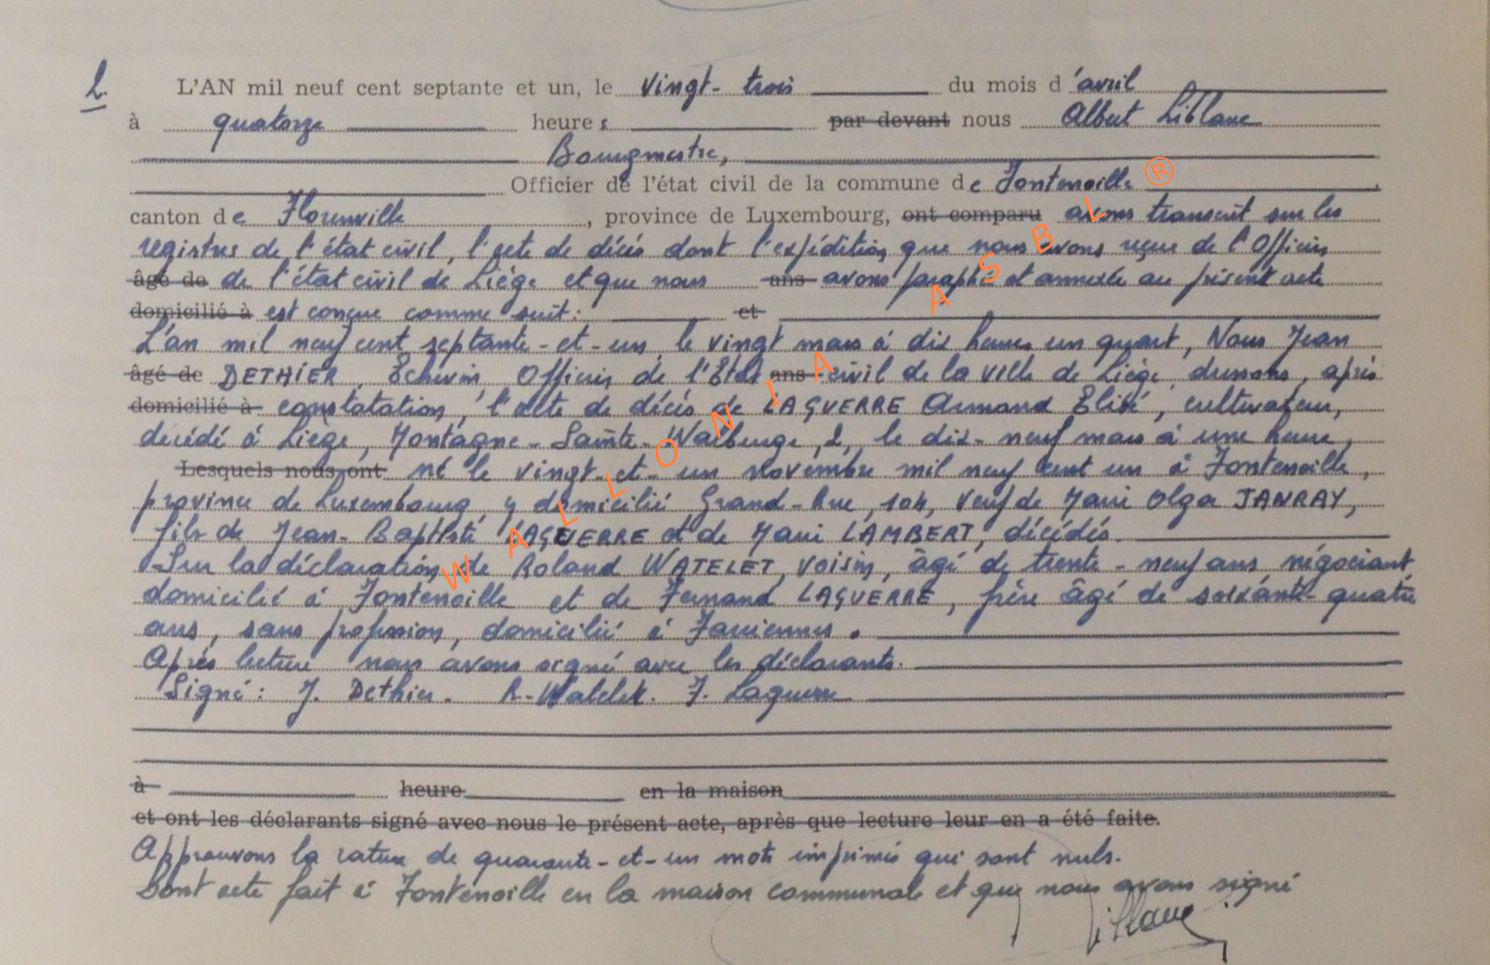 2.
L'AN mil neuf cent septante et un, le vingt-trois du mois d'avril
à quatorze heures par devant nous Albert Liblanc
Bourgmestre,
Officier de l'état civil de la commune de Fontenoille ®
canton de Florenville, province de Luxembourg, ont comparu avons transcrit sur les
registres de l'état civil, l'acte de décès dont l'expédition que nous avons reçue de l'Officier
âgé de de l'état civil de Liège et que nous ans avons paraphé et annexée au présent acte
domicilié à est conçue comme suit: et
L'an mil neuf cent septante-et-un, le vingt mars à dix heures un quart, Nous Jean
âgé de DETHIER, Echevin Officier de l'Etat ans civil de la ville de Liège, dressons, après
domicilié à constatation, l'acte de décès de LAGUERRE Armand Elisé, cultivateur,
décédé à Liège, Montagne-Sainte-Walburge, 2, le dix-neuf mars à une heure,
Lesquels nous ont né le vingt-et-un novembre mil neuf cent un à Fontenoille,
province de Luxembourg, y domicilié Grand-Rue, 104, veuf de Marie Olga JANRAY,
fils de Jean-Baptiste LAGUERRE et de Marie LAMBERT, décédés.
Sur la déclaration de Roland WATELET, voisin, âgé de trente-neuf ans négociant
domicilié à Fontenoille et de Fernand LAGUERRE, frère âgé de soixante-quatre
ans, sans profession, domicilié à
Après lecture nous avons signé avec les déclarants.
Signé: J. Dethier. R. Watelet. F. Laguerre
à heure en la maison
et ont les déclarants signé avec nous le présent acte, après que lecture leur en a été faite.
Approuvons la rature de quarante-et-un mots imprimés qui sont nuls.
Dont acte fait à Fontenoille en la maison communale et que nous avons signé
Liblanc
WALLONIA ASBL